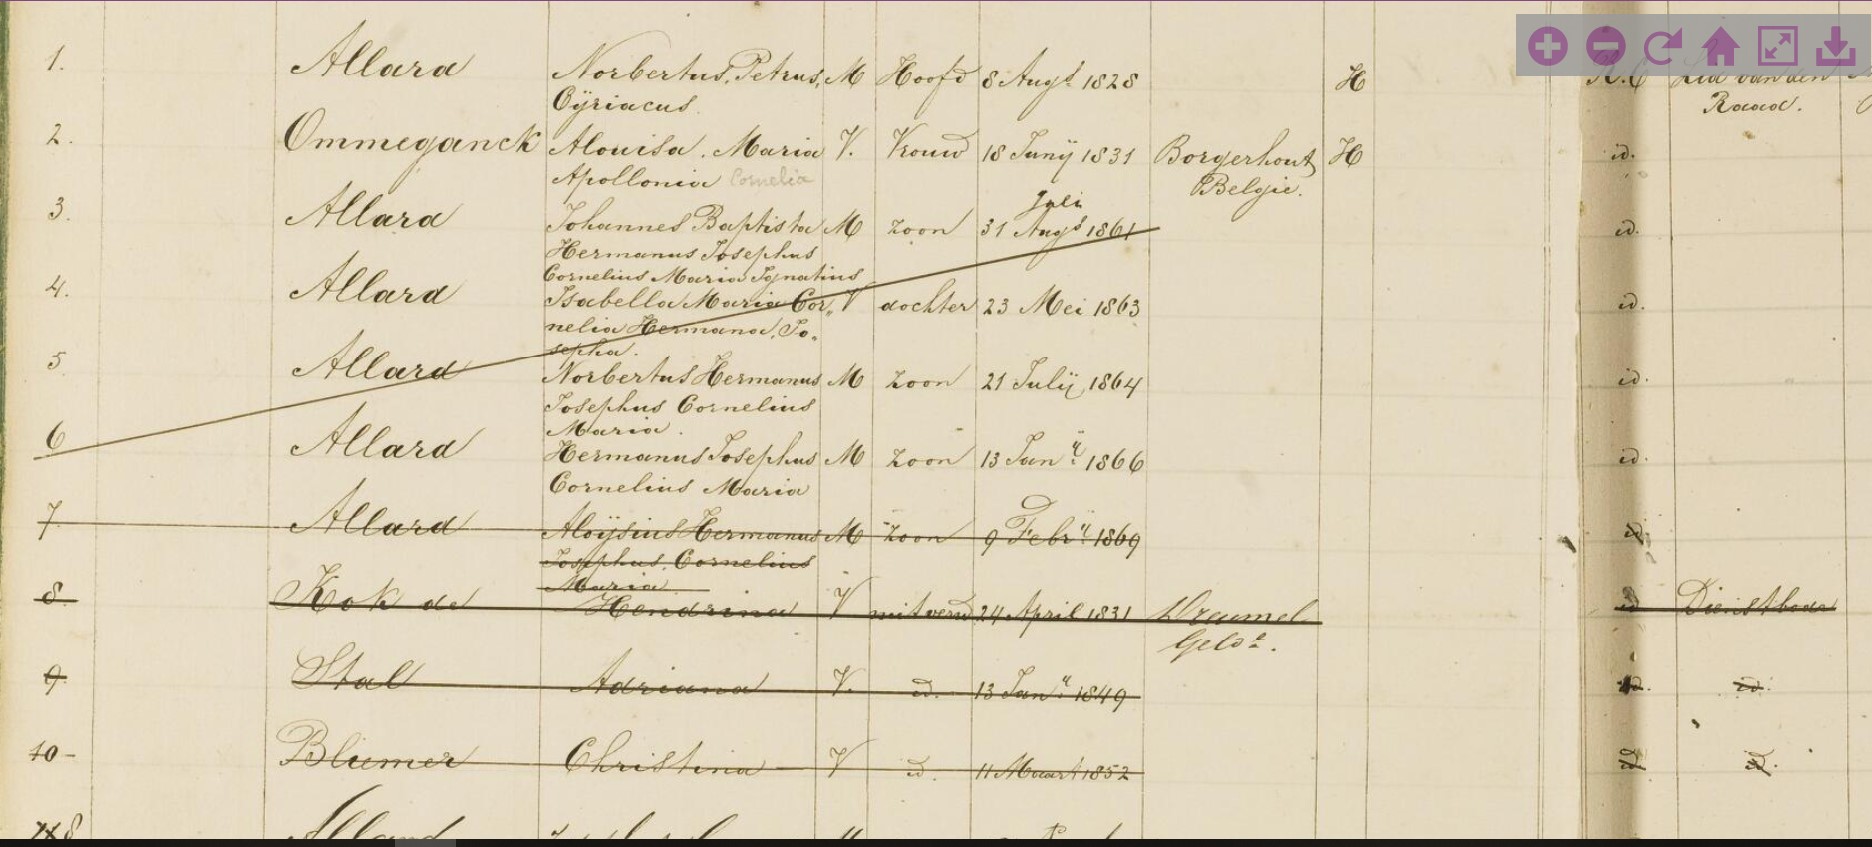 1. Allard Norbertus, Petrus, M Hoofd 8 Augs 1828 H R.C Lid van den
Cÿriacus Raad.
2. Ommeganck Alouisa. Maria V. Vrouw 18 Junÿ 1831 Borgerhout H id.
Apollonia Cornelia België.
Juli
3. Allard Johannes Baptista M zoon 31 Augs 1861 id.
Hermanus Josephus
Cornelius Maria Ignatius
4. Allard Isabella Maria Cor„ V dochter 23 Mei 1863 id.
nelia Hermana, Jo„
sepha.
5 Allard Norbertus Hermanus M zoon 21 Julÿ 1864 id.
Josephus Cornelius
Maria.
6 Allard Hermanus Josephus M zoon 13 Janij 1866 id.
Cornelius Maria
7. Allard Aloÿsius Hermanus M zoon 9 Febrij 1869 id
Josephus. Cornelius
Maria
8. Kok de Hendrina V 24 April 1831 Dreumel id Dienstbode
Geldd.
9. Stal Adriana V. id. 13 Janij 1849 id. id.
10 - Blumer Christina V id. 11 Maart 1852 id id.
8